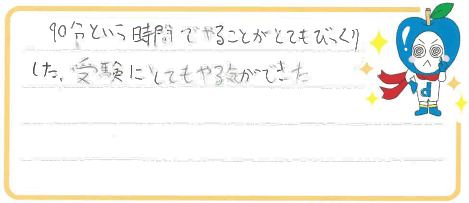 90分という時間でやることがとてもびっくり
した、受験にとてもやる気ができた
d